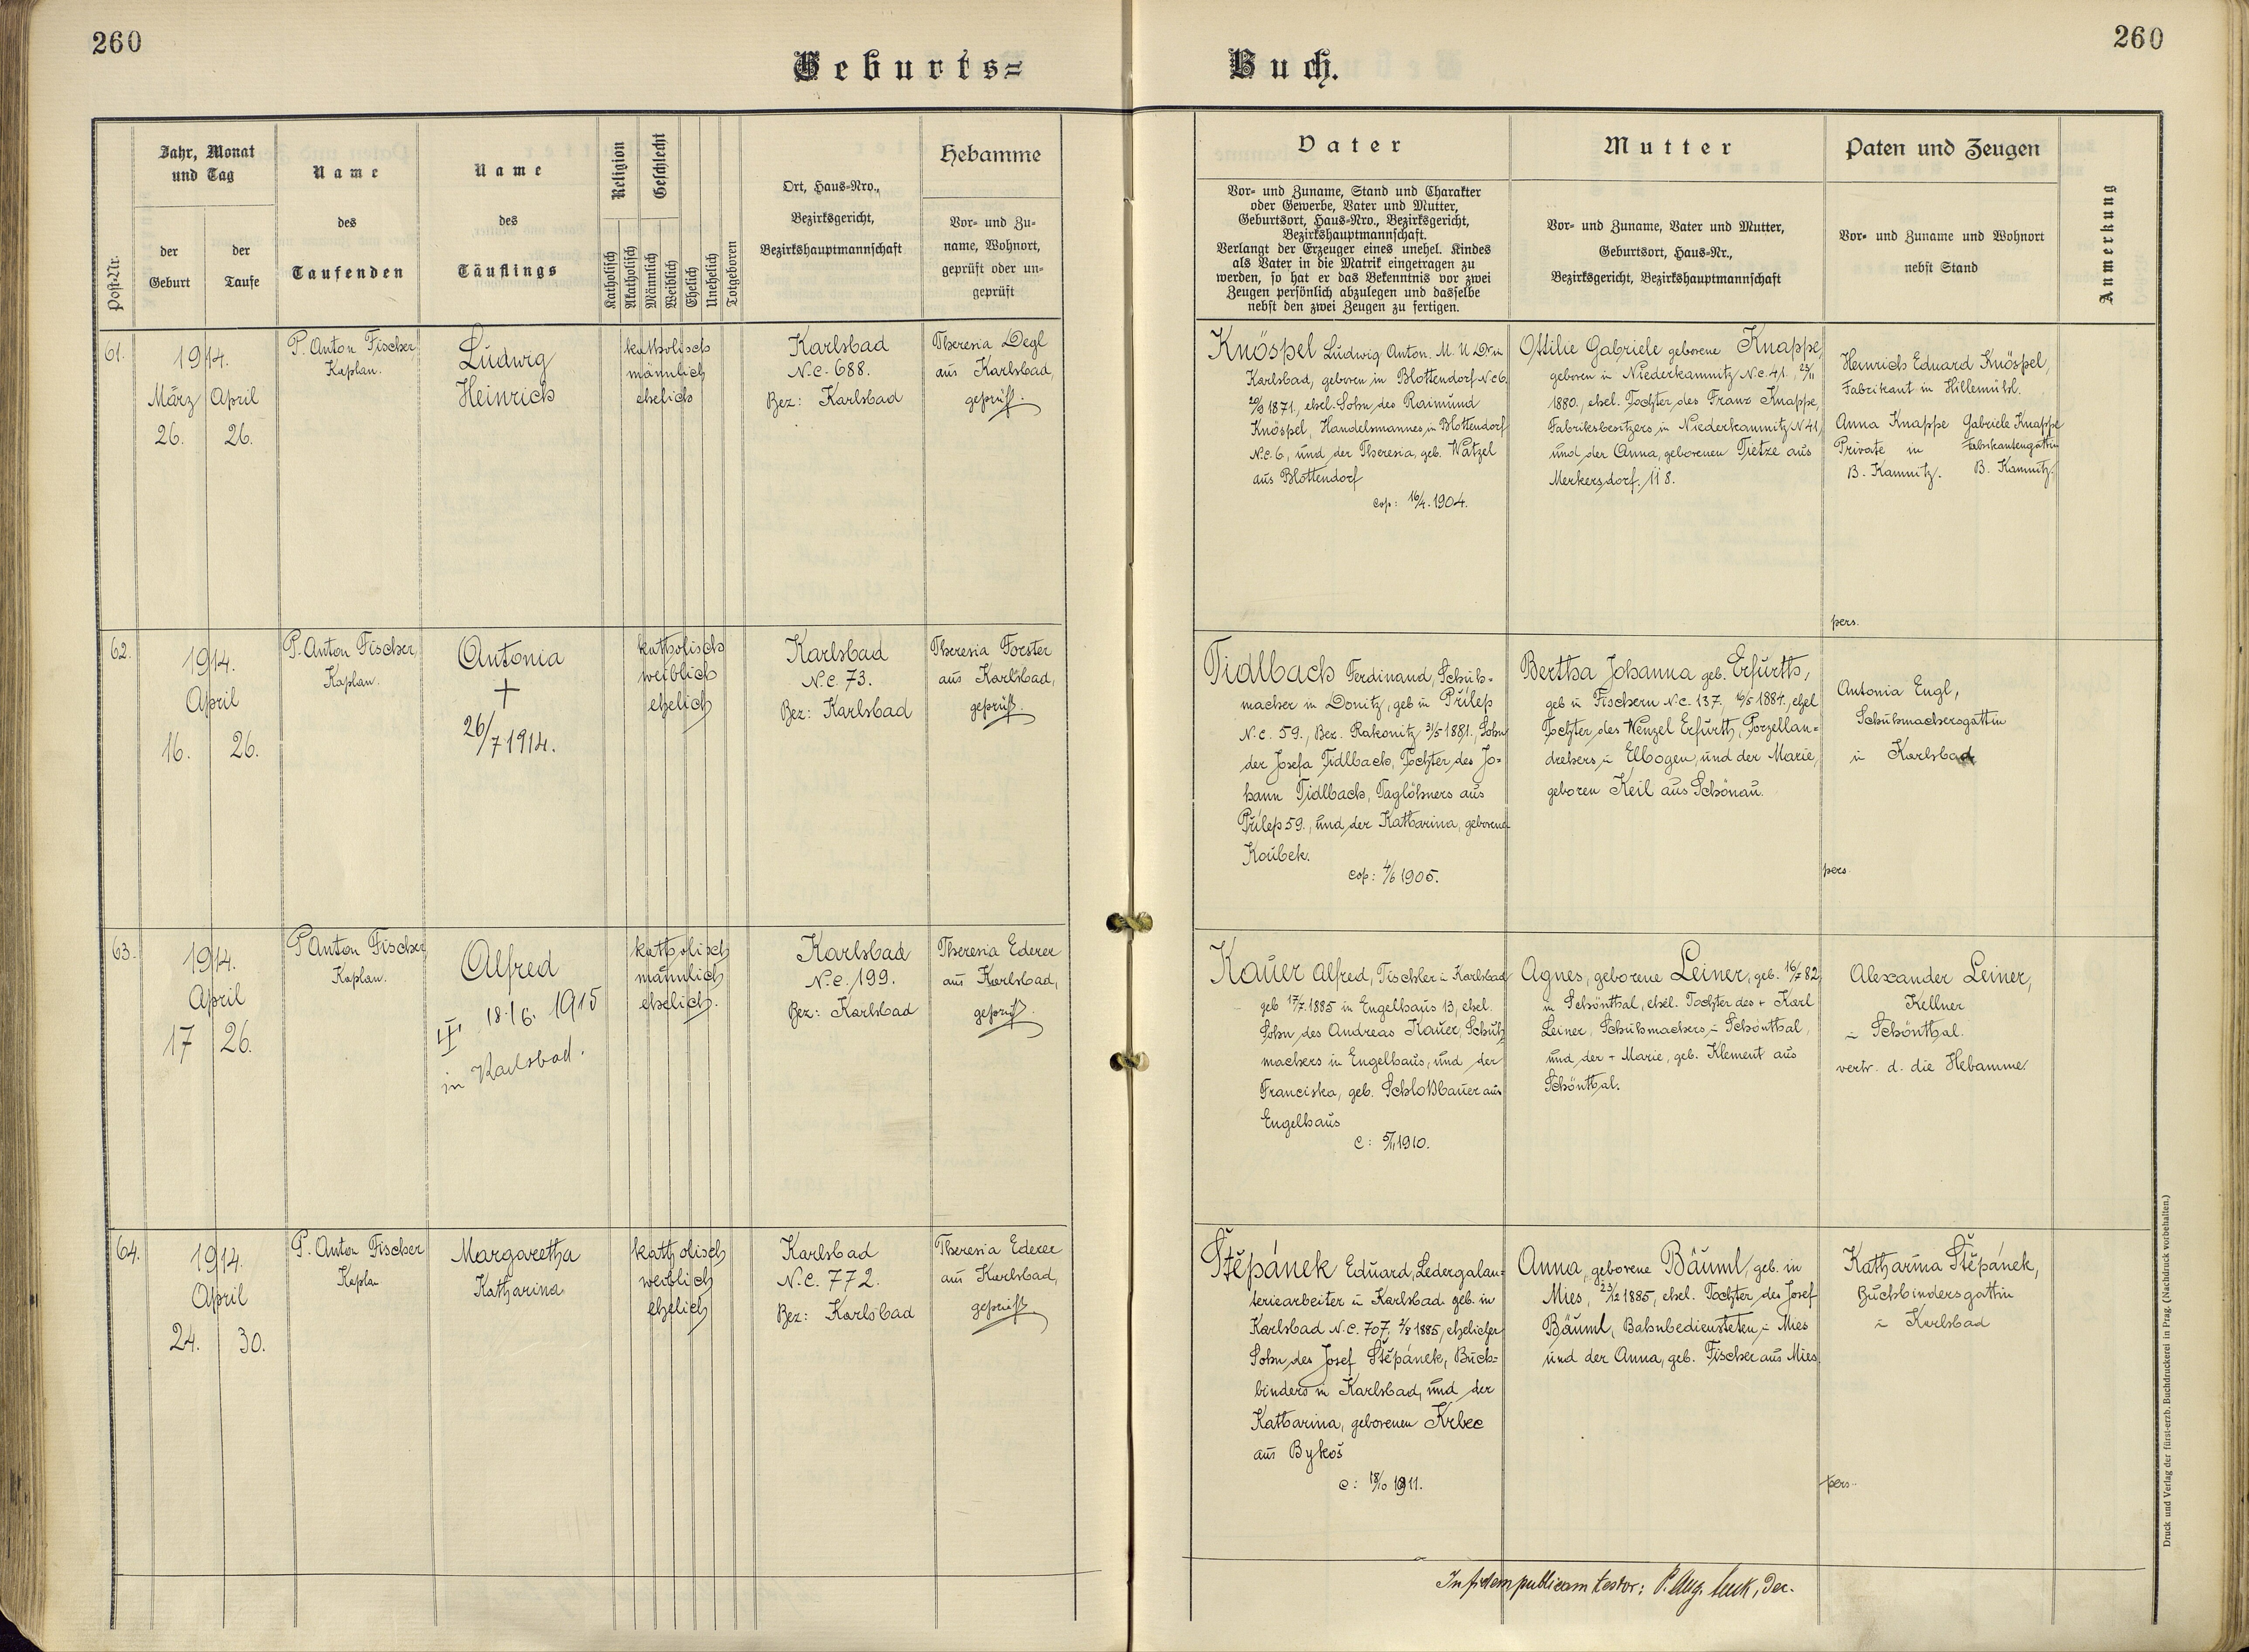 260
260
Geburts=
Buch.
Post-Nr.
Jahr, Monat
und Tag
der
Geburt
der
Taufe
Name
des
Taufenden
Name
des
Täuflings
Religion
Katholisch
Akatholisch
Geschlecht
Männlich
Weiblich
Ehelich
Unehelich
Totgeboren
Ort, Haus-Nro.,
Bezirksgericht,
Bezirkshauptmannschaft
Hebamme
Vor- und Zu-
name, Wohnort,
geprüft oder un-
geprüft
Vater
Vor- und Zuname, Stand und Charakter
oder Gewerbe, Vater und Mutter,
Geburtsort, Haus-Nro., Bezirksgericht,
Bezirkshauptmannschaft.
Verlangt der Erzeuger eines unehel. Kindes
als Vater in die Matrik eingetragen zu
werden, so hat er das Bekenntnis vor zwei
Zeugen persönlich abzulegen und dasselbe
nebst den zwei Zeugen zu fertigen.
Mutter
Vor- und Zuname, Vater und Mutter,
Geburtsort, Haus-Nr.,
Bezirksgericht, Bezirkshauptmannschaft
Paten und Zeugen
Vor- und Zuname und Wohnort
nebst Stand
Anmerkung
61.
1914.
März April
26. 26.
P. Anton Fischer,
Kaplan.
Ludwig
Heinrich
katholisch
männlich
ehelich
Karlsbad
N.C. 688.
Bez: Karlsbad
Theresia Degl
aus Karlsbad,
geprüft.
Knöspel Ludwig Anton. M. U. Dr. in
Karlsbad, geboren in Blottendorf N.C 6.
20/9 1871., ehel. Sohn des Raimund
Knöspel, Handelsmannes in Blottendorf
N.C. 6, und der Theresia, geb. Watzel
aus Blottendorf
cop: 16/4. 1904.
Ottilie Gabriele geborene Knappe,
geboren in Niederkamnitz N.C. 41.,
1880., ehel. Tochter des Franz Knappe,
Fabriksbesitzers in Niederkamnitz N 41,
und der Anna, geborenen Tietze aus
Merkersdorf. 118.
Heinrich Eduard Knöspel,
Fabrikant in Hillemühl.
Anna Knappe Gabriele Knappe
Private in Fabrikantengattin
B. Kamnitz. B. Kamnitz.
pers.
62.
1914.
April
16. 26.
P. Anton Fischer,
Kaplan.
Antonia
+
26/7 1914.
katholisch
weiblich
ehelich
Karlsbad
N.C. 73.
Bez: Karlsbad
Theresia Forster
aus Karlsbad,
geprüft.
Tidlbach Ferdinand, Schuh-
macher in Donitz, geb in Přílep
N.C. 59., Bez. Rakonitz 31/5 1881., Sohn
der Josefa Tidlbach, Tochter des Jo-
hann Tidlbach, Taglöhners aus
Přílep 59., und der Katharina, geborene
Koubek.
cop: 4/6 1905.
Bertha Johanna geb. Erfurth,
geb in Fischern N.C. 137., 16/5 1884., ehel
Tochter des Wenzel Erfurth, Porzellan=
drehers in Elbogen, und der Marie,
geboren Keil aus Schönau.
Antonia Engl,
Schuhmachersgattin
in Karlsbad
pers.
63.
1914.
April
17 26.
P Anton Fischer
Kaplan.
Alfred
18./6. 1915
in Karlsbad.
katholisch
männlich
ehelich.
Karlsbad
N.C. 199.
Bez: Karlsbad
Theresia Ederer
aus Karlsbad,
geprüft.
Kauer Alfred, Tischler in Karlsbad
geb 17/7. 1885 in Engelhaus 13, ehel.
Sohn des Andreas Kauer, Schuh
machers in Engelhaus, und der
Franciska, geb. Schloßbauer aus
Engelhaus
C: 5/11 1910.
Agnes, geborene Leiner, geb. 16/7 82,
in Schönthal, ehel. Tochter des + Karl
Leiner, Schuhmachers in Schönthal,
und der + Marie, geb. Klement aus
Schönthal.
Alexander Leiner,
Kellner
in Schönthal.
vertr. d. die Hebamme.
64.
1914.
April
24. 30.
P. Anton Fischer
Kaplan
Margaretha
Katharina
katholisch
weiblich
ehelich
Karlsbad
N.C. 772.
Bez: Karlsbad
Theresia Ederer
aus Karlsbad,
geprüft
Štěpánek Eduard, Ledergalan-
teriearbeiter in Karlsbad geb. in
Karlsbad N.C. 707, 2/8 1885, ehelicher
Sohn des Josef Štěpánek, Buch=
binders in Karlsbad, und der
Katharina, geborenen Krbec
aus Bykoš
C: 18/10 1911.
Anna, geborene Bäuml, geb. in
Mies, 23/12 1885, ehel. Tochter des Josef
Bäuml, Bahnbediensteten in Mies
und der Anna, geb. Fischer aus Mies.
Katharina Štěpánek,
Buchbindersgattin
in Karlsbad
pers.
In fidem publicam testor: P. Aug. Dec.
Druck und Verlag der fürst-erzb. Buchdruckerei in Prag. (Nachdruck vorbehalten.)